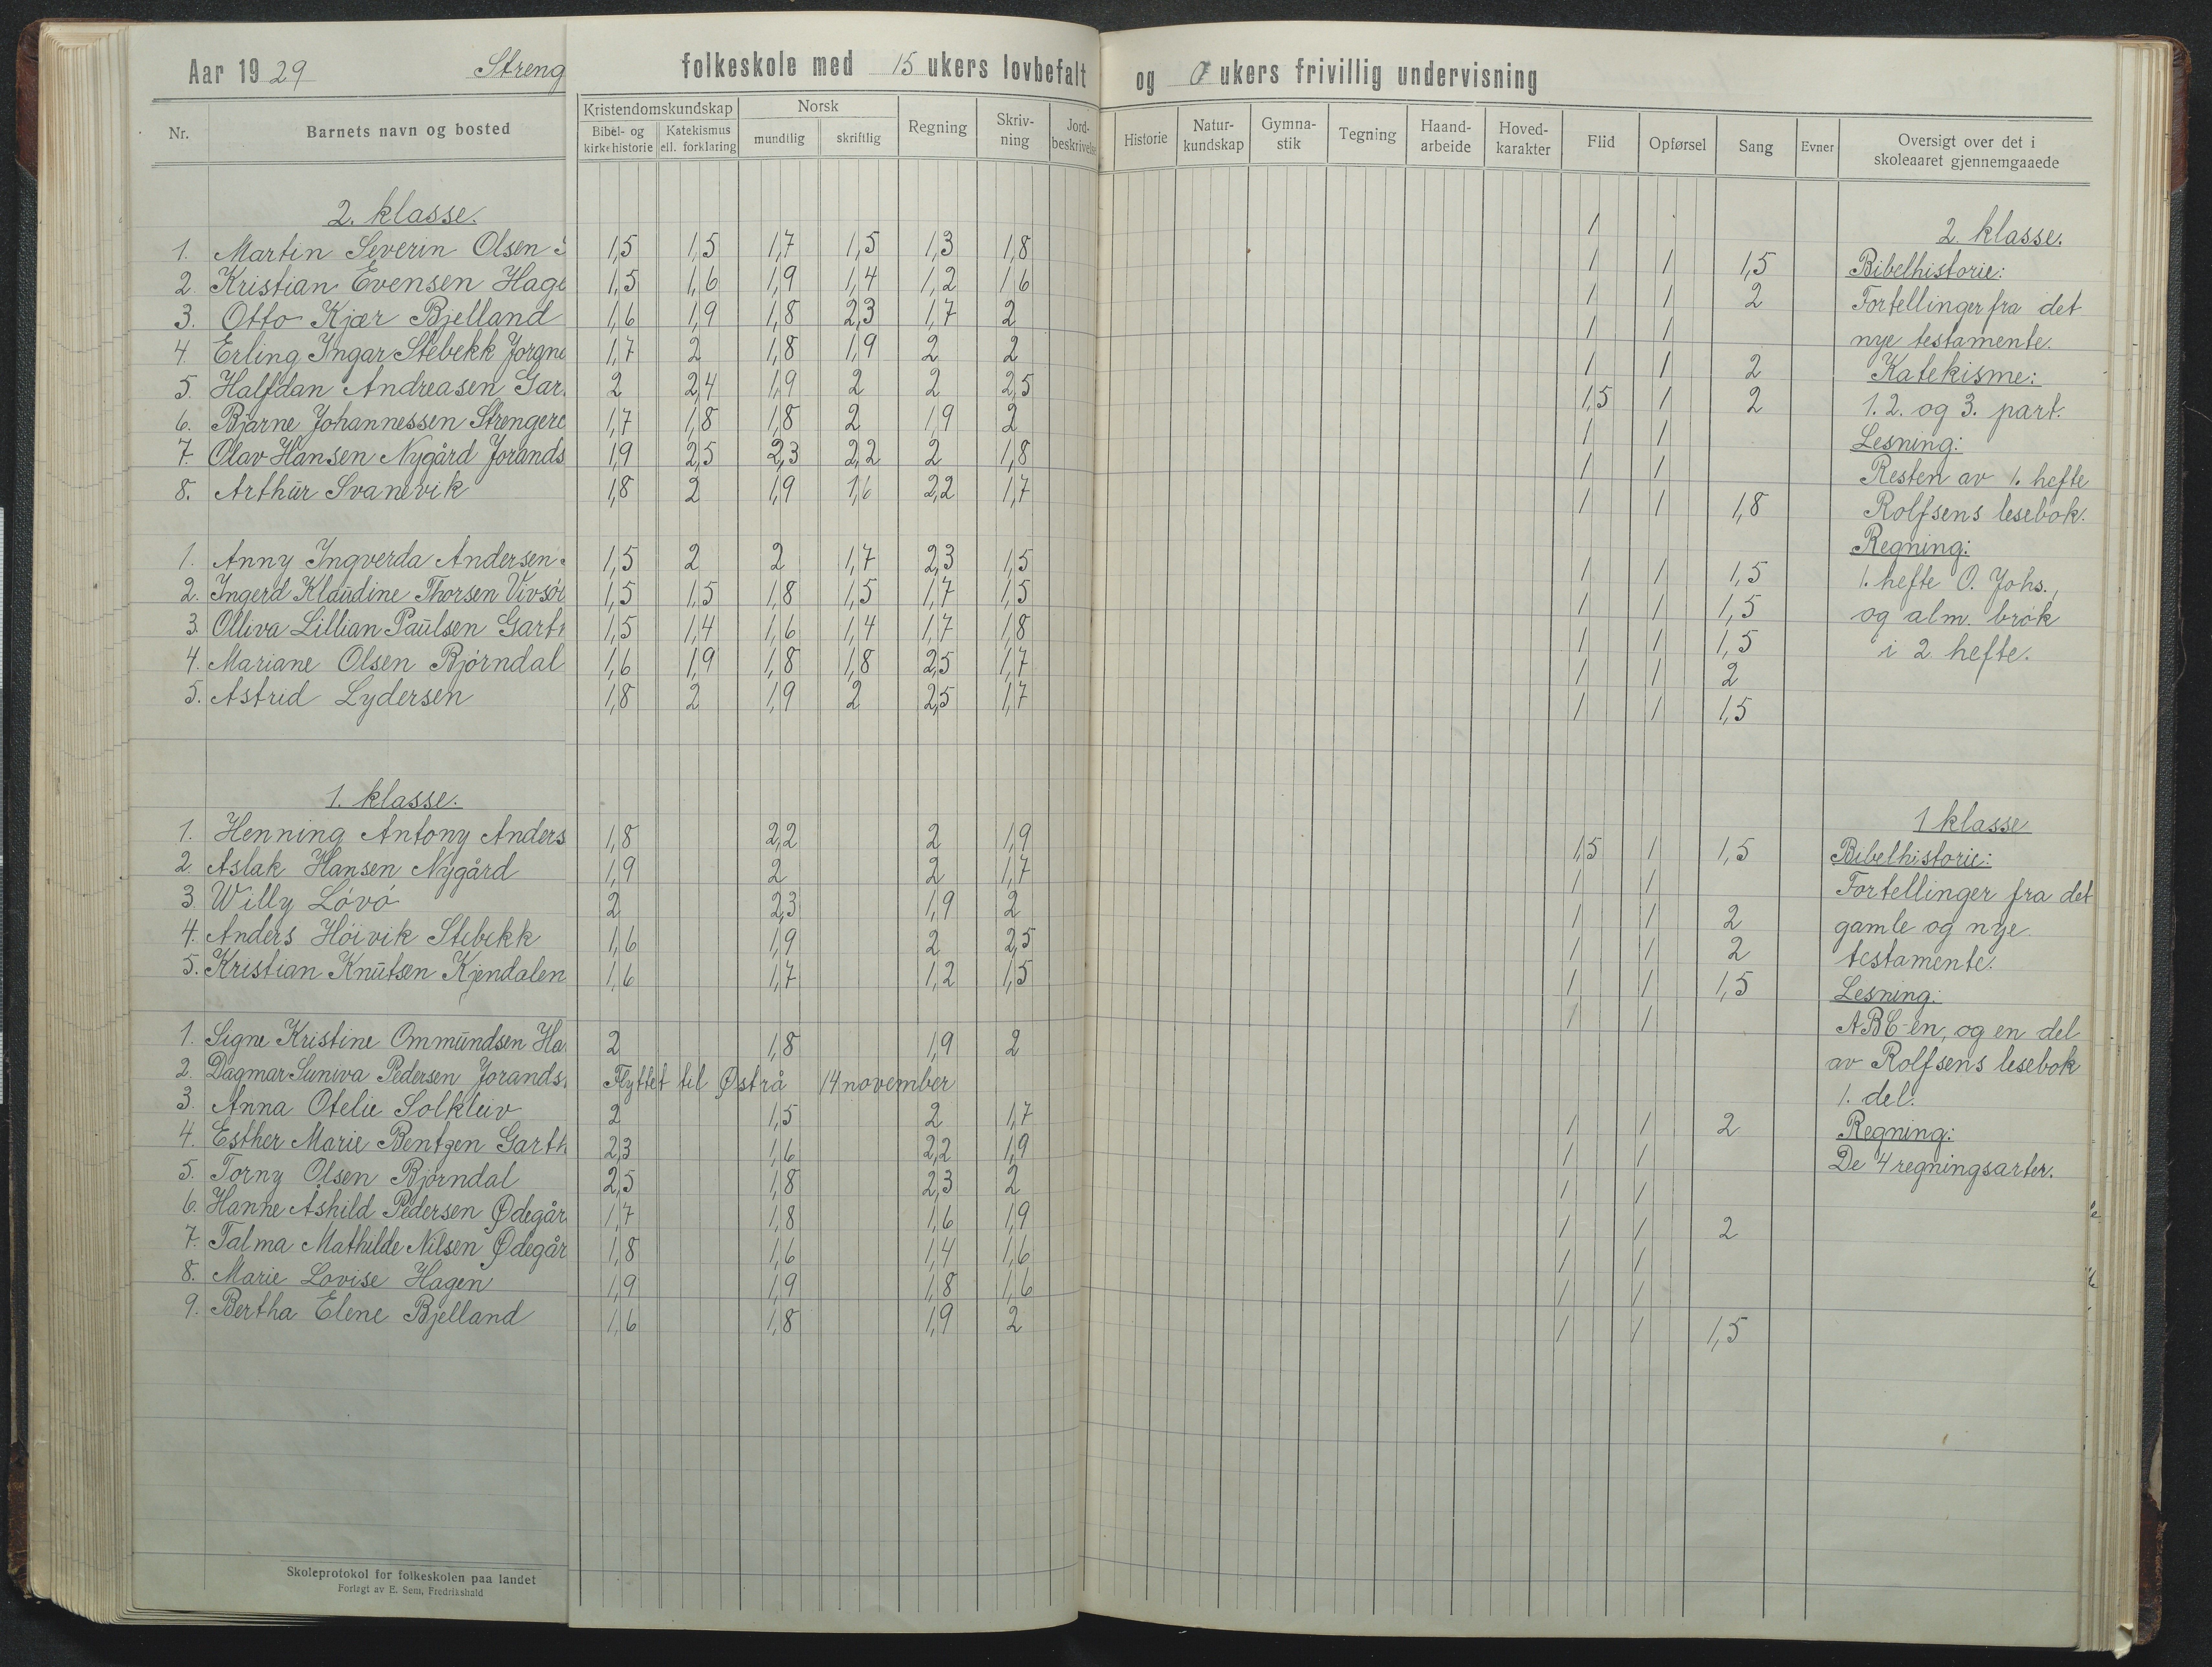 Aar 1929 Streng folkeskole med 15 ukers lovbefalt og 0 ukers frivillig undervisning
Nr. Barnets navn og bosted Kristendomskundskap Bibel- og kirkehistorie Katekismus ell. forklaring Norsk mundtlig skriftlig Regning Skriv-ning Jord-beskrivelse Historie Natur-kundskap Gymna-stik Tegning Haand-arbeide Hoved-karakter Flid Opførsel Sang Evner Oversigt over det i skoleaaret gjennemgaaede
2. klasse.
1. Martin Severin Olsen 1,5 1,5 1,7 1,5 1,3 1,8
2. Kristian Evensen Hage 1,5 1,6 1,9 1,4 1,2 1,6
3. Otto Kjær Bjelland 1,6 1,9 1,8 2,3 1,7 2
4. Erling Ingar Stebekk Jorgne 1,7 2 1,8 1,9 2 2
5. Halfdan Andreasen Gar 2 2,4 1,9 2 2 2,5
6. Bjarne Johannessen Strengere 1,7 1,8 1,8 2 1,9 2
7. Olav Hansen Nygård Jorands 1,9 2,5 2,3 2,2 2 1,8
8. Arthur Svanevik 1,8 2 1,9 1,6 2,2 1,7
1. Anny Ingverda Andersen 1,5 2 2 1,7 2,3 1,5
2. Ingerd Klaudine Thorsen Vivsöl 1,5 1,5 1,8 1,5 1,7 1,5
3. Olliva Lillian Paulsen Garth 1,5 1,4 1,6 1,4 1,7 1,8
4. Mariane Olsen Bjórndal 1,6 1,9 1,8 1,8 2,5 1,7
5. Astrid Lydersen 1,8 2 1,9 2 2,5 1,7
1. klasse.
1. Henning Antony Anders 1,8 2,2 2 1,9
2. Aslak Hansen Nygård 1,9 2 2 1,7
3. Willy Lóvó 2 2,3 1,9 2
4. Anders Hóivik Stebekk 1,6 1,9 2 2,5
5. Kristian Knutsen Kjendalen 1,6 1,7 1,2 1,5
1. Signe Kristine Ommundsen Ha 2 1,8 1,9 2
2. Dagmar Suniva Pedersen Jorands Flyttet til Østrå 14 november
3. Anna Otelie Solkleiv 2 1,5 2 1,7
4. Esther Marie Bentzen Garth 2,3 1,6 2,2 1,9
5. Torny Olsen Bjórndal 2,5 1,8 2,3 2
6. Hanne Åshild Pedersen Ødegår 1,7 1,8 1,6 1,9
7. Talma Mathilde Nilsen Ødegår 1,8 1,6 1,4 1,6
8. Marie Lovise Hagen 1,9 1,9 1,8 1,6
9. Bertha Elene Bjelland 1,6 1,8 1,9 2
Skoleprotokol for folkeskolen paa landet
Forlagt av E. Sem, Fredrikshald
1
1 1 1,5
1 1 2
1 1
1 1 2
1,5 1 2
1 1
1 1
1 1 1,8
1 1 1,5
1 1 1,5
1 1 1,5
1 1 2
1 1 1,5
1,5 1 1,5
1 1
1 1 2
1 1 2
1 1 1,5
1 1
1 1 2
1 1
1 1
1 1 2
1 1
1 1
1 1 1,5
2. klasse.
Bibelhistorie:
Fortellinger fra det
nye testamente.
Katekisme:
1. 2. og 3. part.
Lesning:
Resten av 1. hefte
Rolfsens lesebok.
Regning:
1. hefte O. Johs.,
og alm. brók
i 2 hefte.
1 klasse
Bibelhistorie:
Fortellinger fra det
gamle og nye
testamente.
Lesning:
ABC-en, og en del
av Rolfsens lesebok
1. del.
Regning:
De 4 regningsarter.